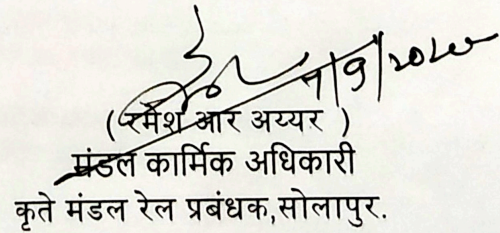 7/9/2020
( रमेश आर अय्यर )
मंडल कार्मिक अधिकारी
कृते मंडल रेल प्रबंधक,सोलापुर.